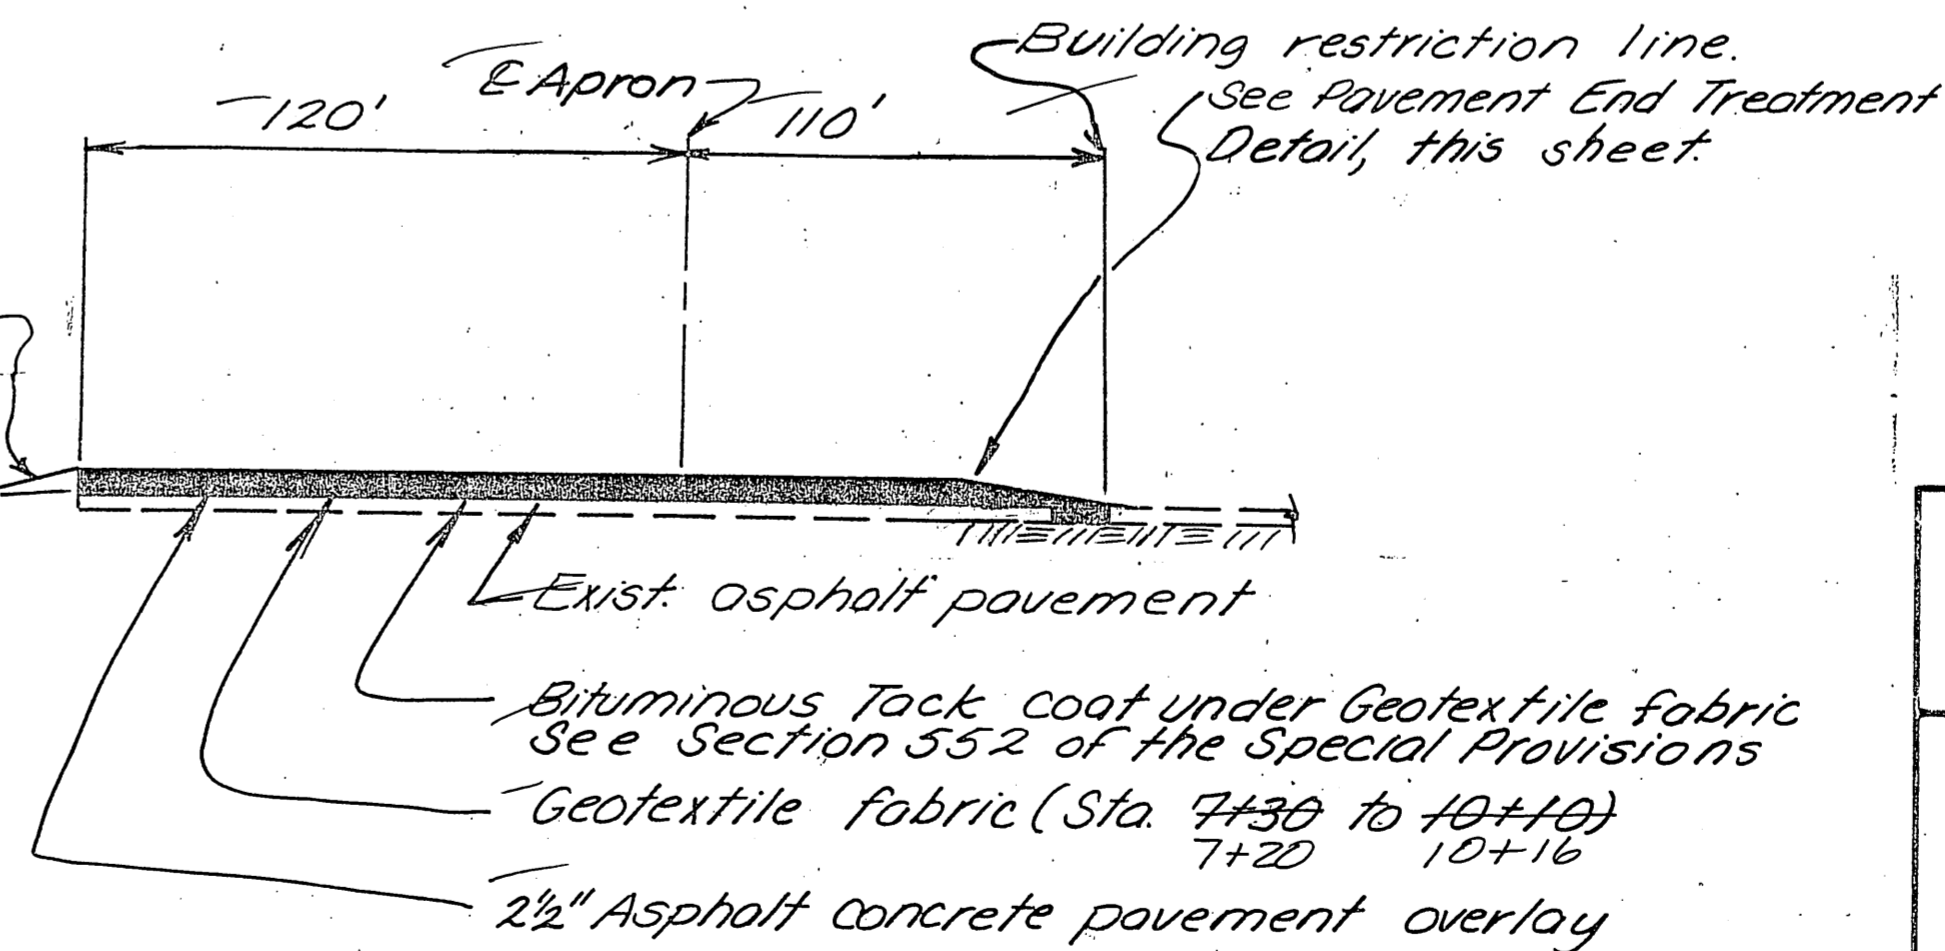 Building restriction line.
℄ Apron
120'
110'
See Pavement End Treatment
Detail, this sheet.
Exist. asphalt pavement
Bituminous Tack coat under Geotextile fabric
See Section 552 of the Special Provisions
Geotextile fabric (Sta. 7+30 to 10+10)
7+20 10+16
2½" Asphalt concrete pavement overlay